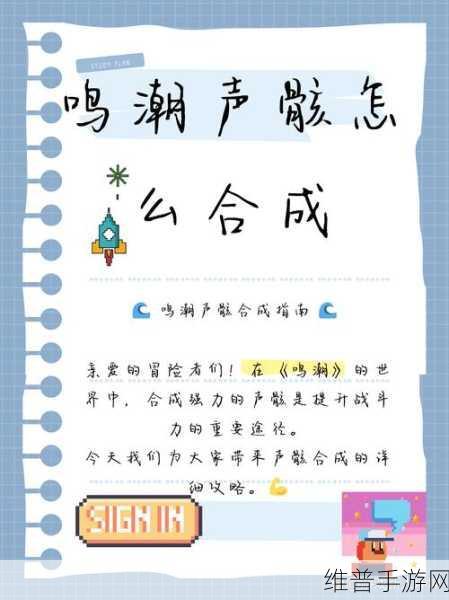 STUDY PLAN
鸣潮声骸怎
么合成
🌊 鸣潮声骸合成指南 🌊
亲爱的冒险者们！在《鸣潮》的世
界中，合成强力的声骸是提升战斗
力的重要途径。
今天我们为大家带来声骸合成的详
细攻略。💪
SIGN IN
维普手游网